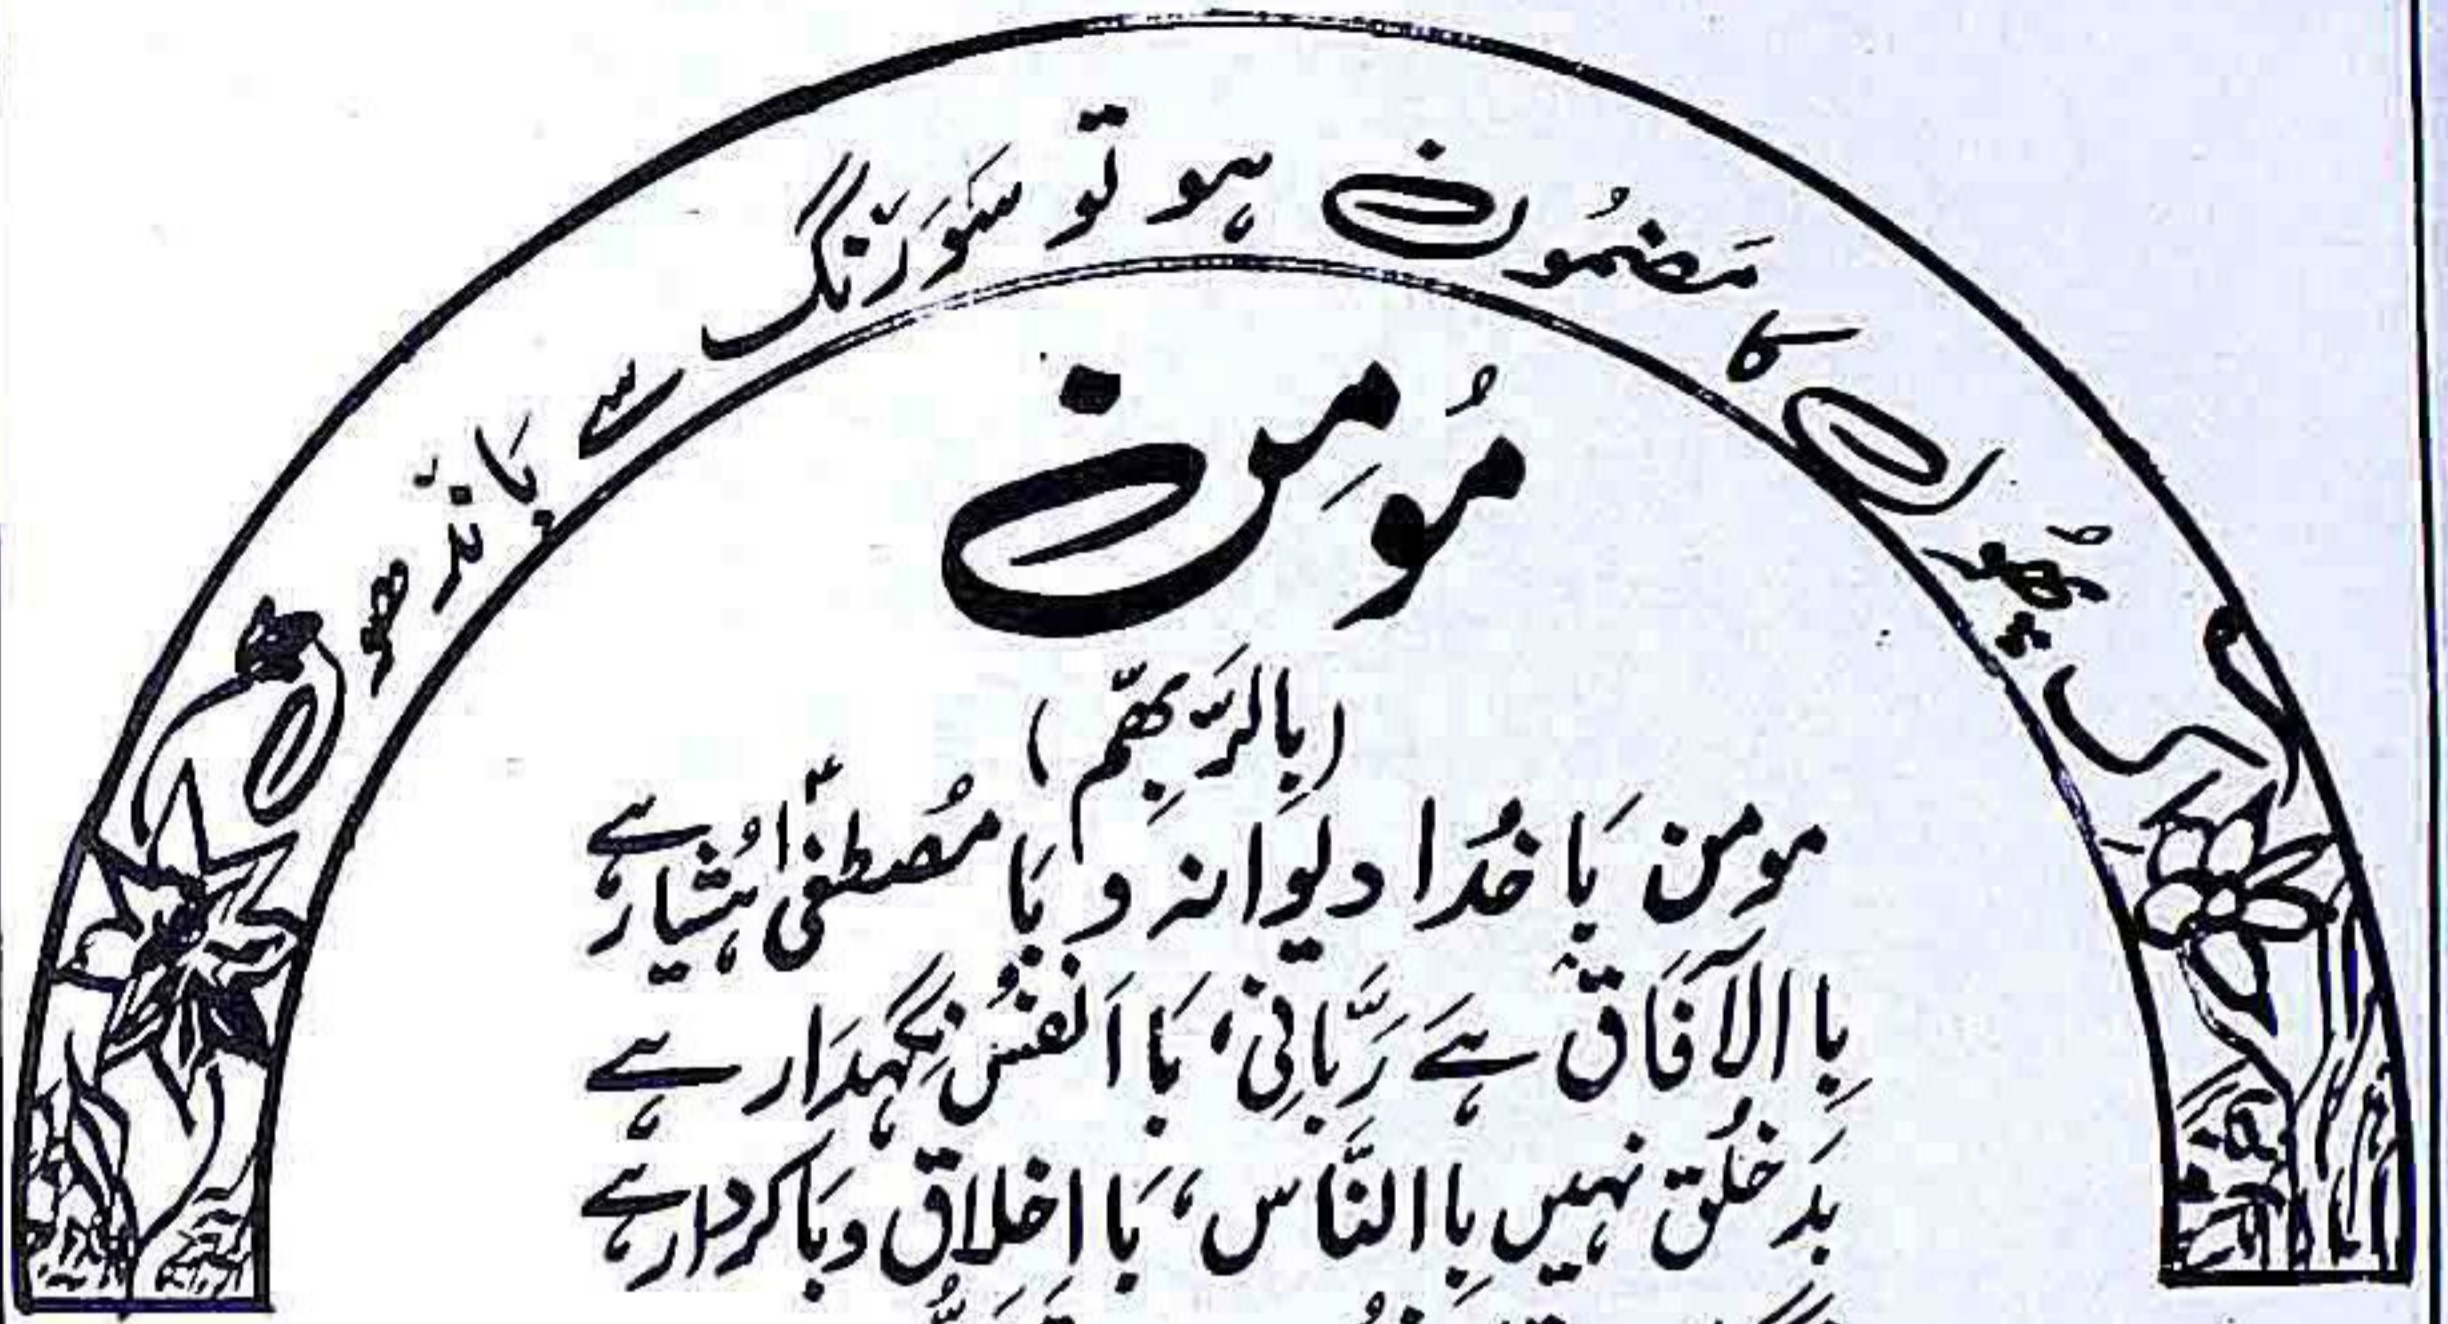 اک پھُول کا مَضمُون ہو تو سَو رَنگ سے بَاندھوں
مُومِن
(بِالرَّبِّهِم)
مومن بَا خُدا دیوانہ و بَا مُصطفیٰؐ ہُشیار ہے
بِا الآفَاق ہَے رَبَّانِی، بَا اَنفُس نِگہدَار ہے
بَد خُلُق نہیں بِا النَّاس، بَا اخلاق و بَا کردار ہے